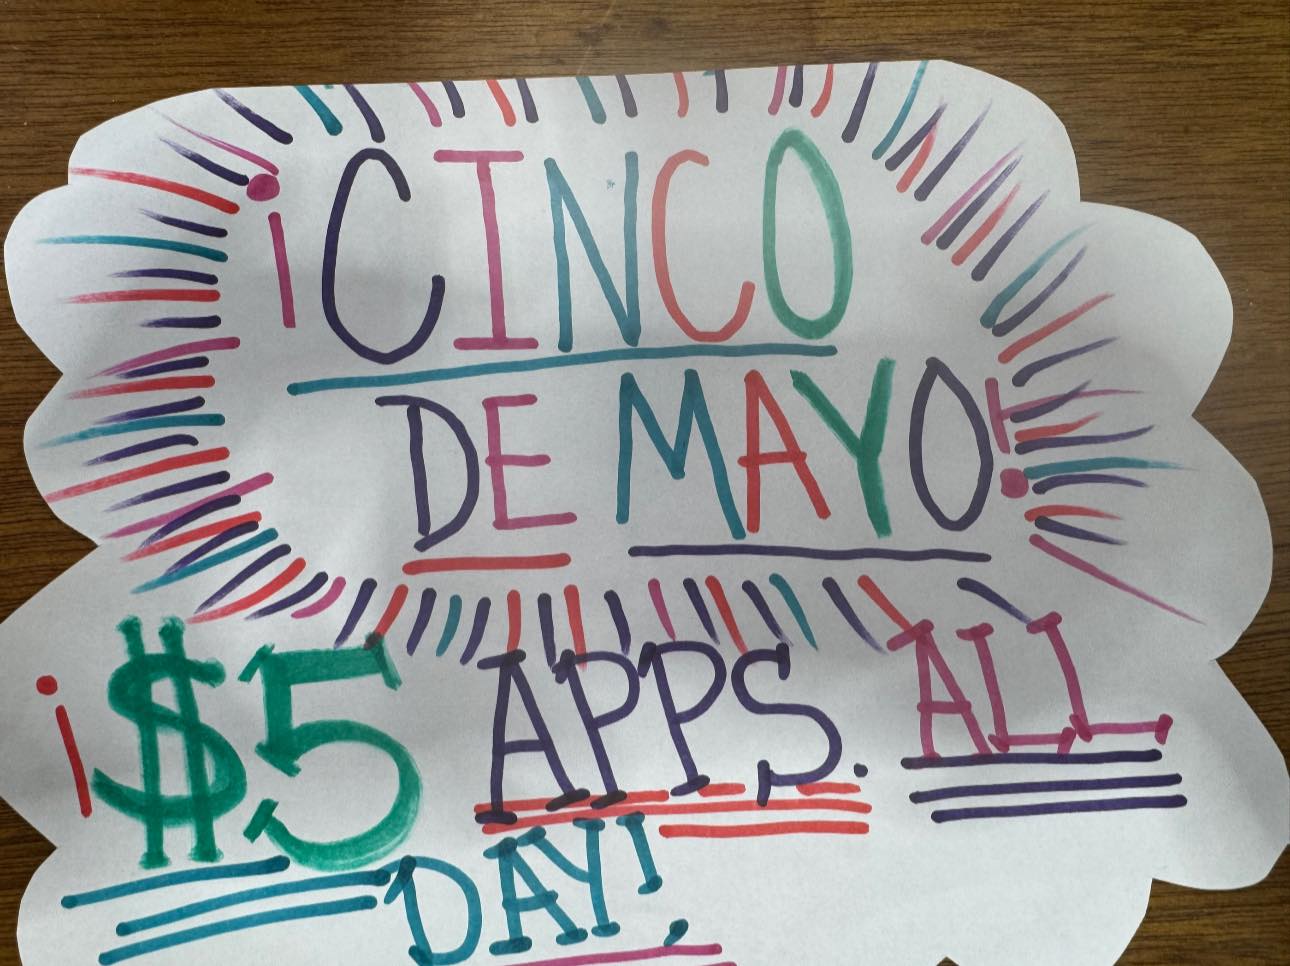 ¡CINCO
DE MAYO!
¡$5 APPS. ALL
DAY!